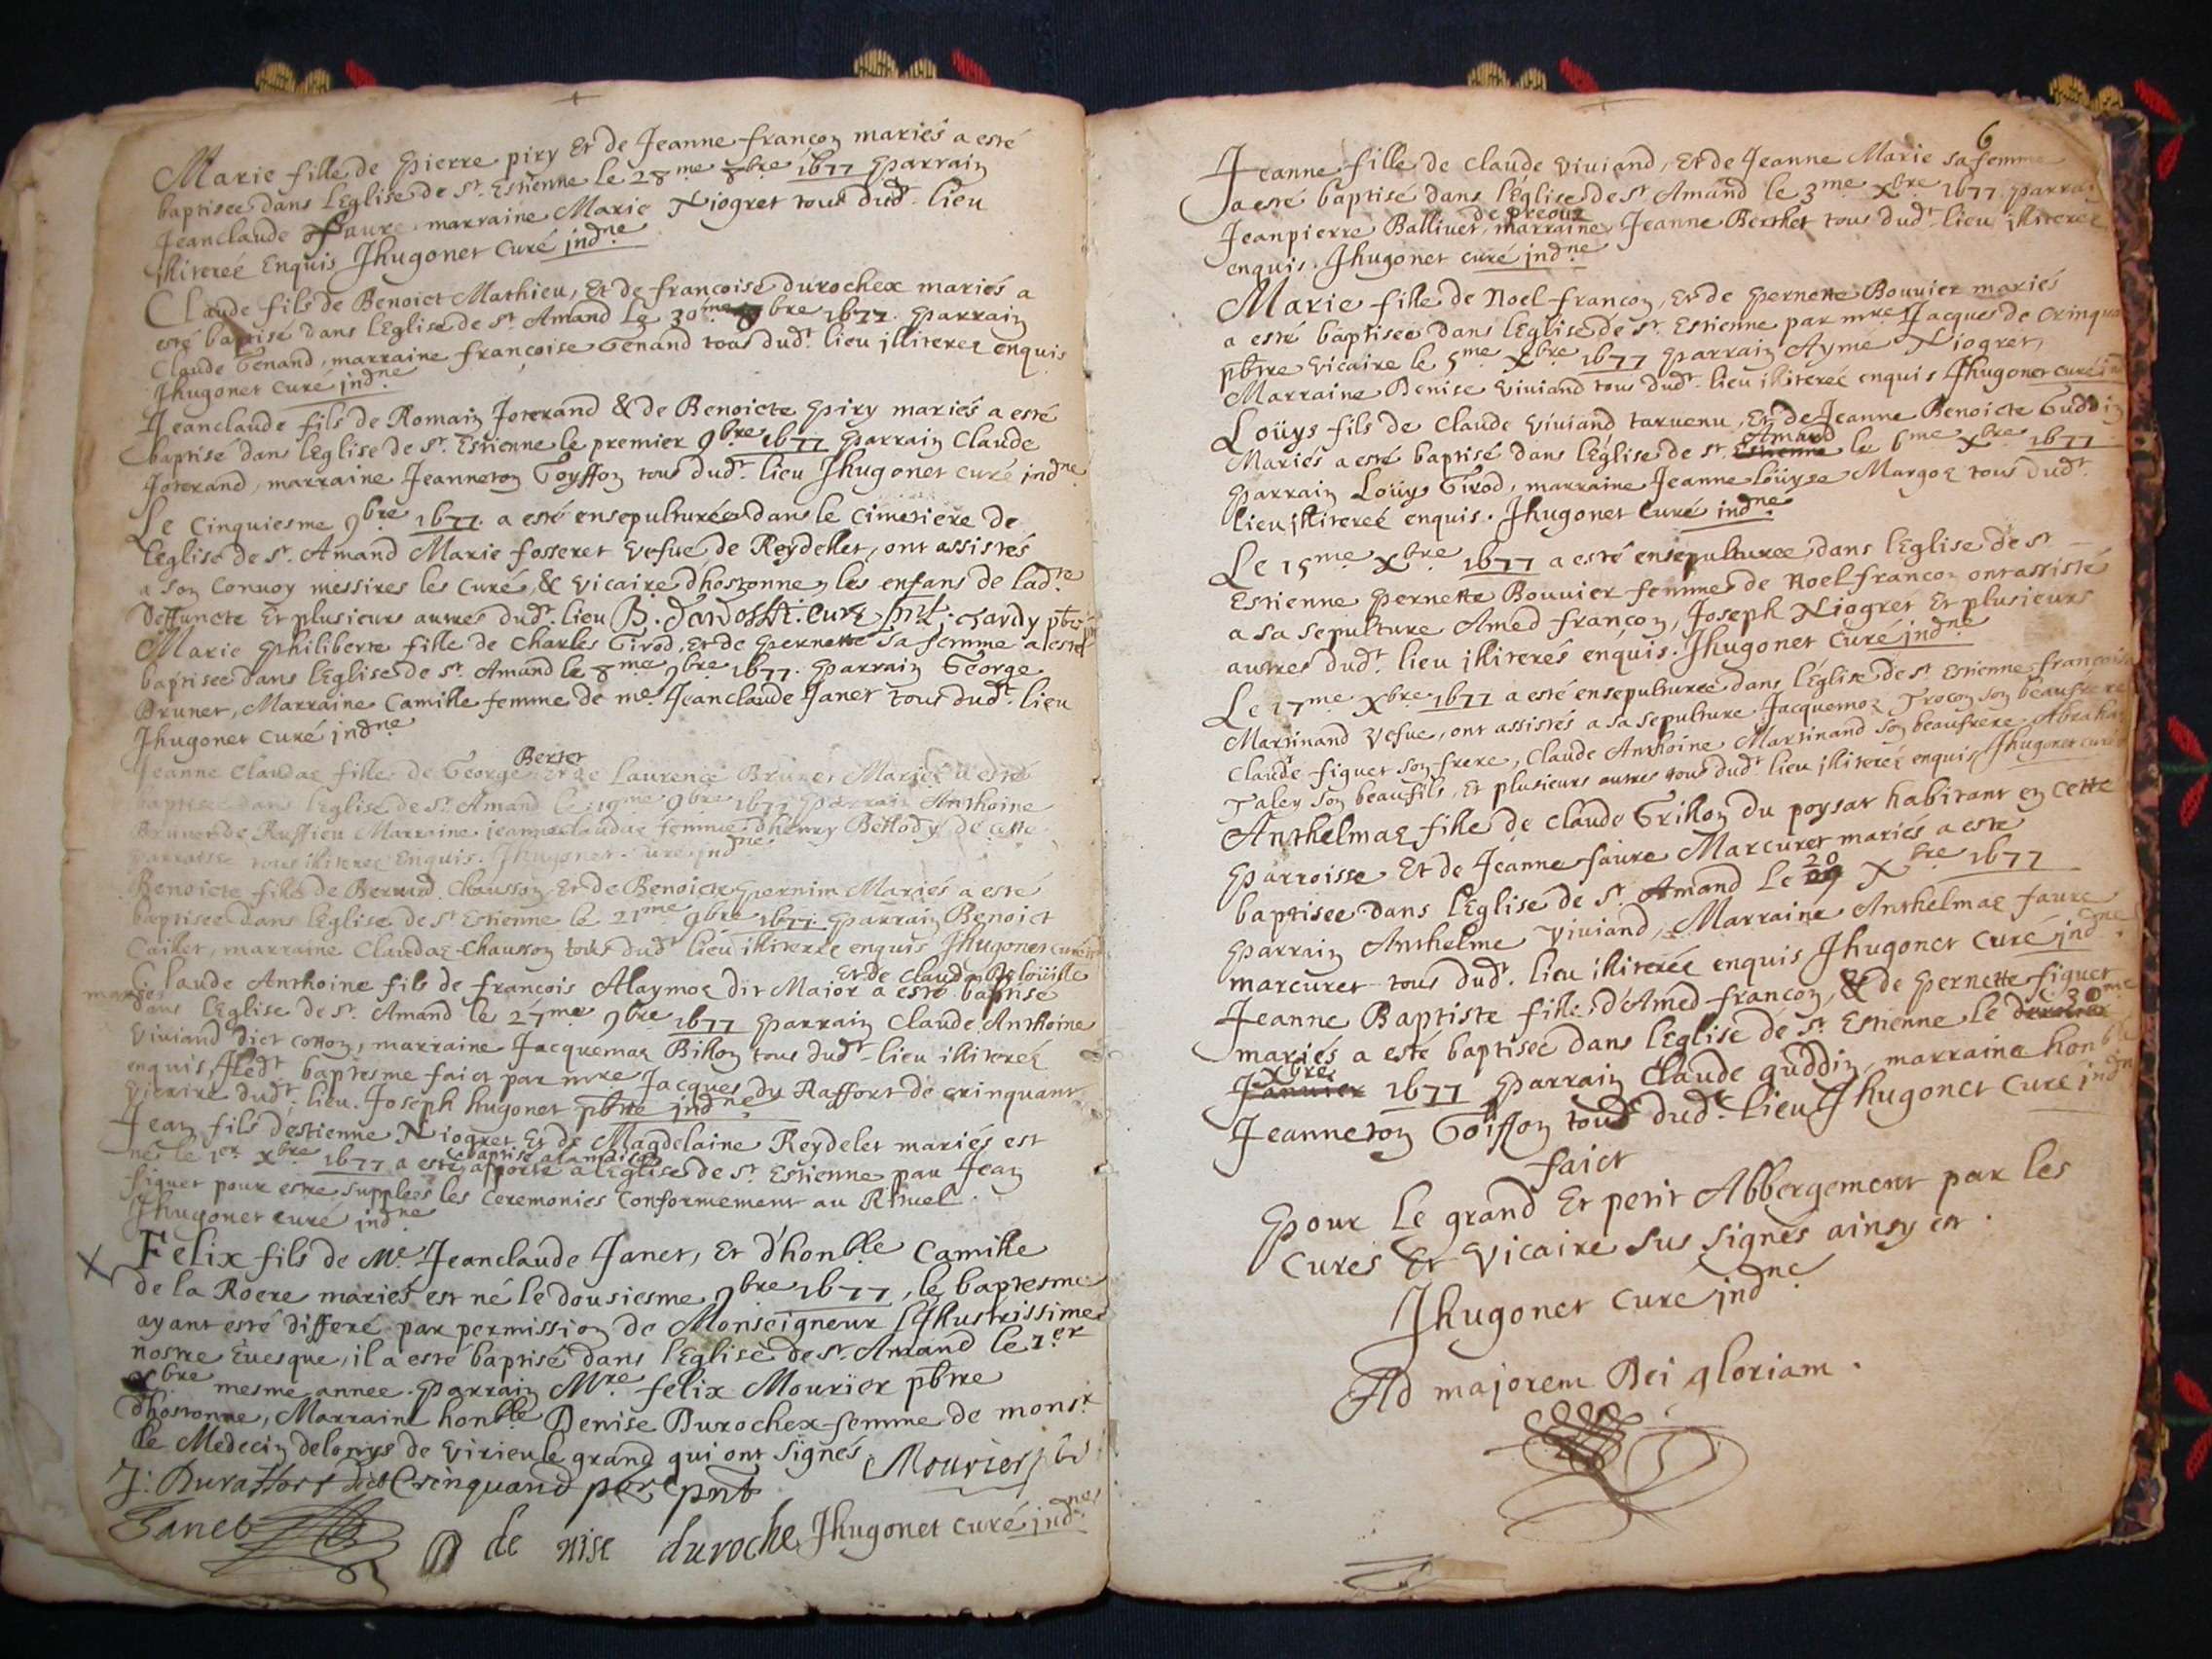 Marie fille de Pierre piry Et de Jeanne françon mariés a esté
baptisee dans lEglise de St. Estienne le 28me 8bre 1677 Parrain
Jeanclaude faure marraine Marie Niogret tous dudt. lieu
illiterez Enquis Jhugonet Curé indne
Claude fils de Benoict Mathieu, Et de françoise durochex mariés a
esté baptisé dans lEglise de St. Amand le 30me bre 1677. Parrain
Claude Genand, marraine françoise Genand tous dudt. lieu illiterez enquis
Jhugonet Curé indne
Jeanclaude fils de Romain Joterand & de Benoicte Piry mariés a esté
baptisé dans lEglise de St. Estienne le premier 9bre 1677 Parrain Claude
Joterand, marraine Jeanneton Goyffon tous dudt. lieu Jhugonet curé indne
Le Cinquiesme 9bre 1677 a esté ensepulturée dans le Cimetiere de
lEglise de St. Amand Marie fosseret Vefue de Reydellet, ont assistés
a son Convoy messires les Curé, & Vicaire dhostonne, les enfans de ladte
Deffuncte Et plusieurs autres dudt. lieu
Marie Philiberte fille de Charles Girod, Et de Pernette sa femme a esté
baptisee dans lEglise de St. Amand le 8me 9bre 1677. Parrain George
Brunet, Marraine Camille femme de me. Jeanclaude Janet tous dudt. lieu
Jhugonet curé indne
Berter
Jeanne Claudaz fille de George Et de Laurence Brunet Mariés a esté
baptisee dans lEglise de St. Amand le 19me 9bre 1677 Parrain Anthoine
Brunet de Ruffieu Marraine jeanneclaudaz femme dhenry Bettody de cette
parroisse tous illiterez Enquis. Jhugonet. Curé indne
Benoicte fille de Bernard Chausson Et de Benoicte Pernim Mariés a esté
baptisee dans lEglise de St Estienne le 21me 9bre 1677. Parrain Benoict
Caillet, marraine Claudaz Chausson tous dudt lieu illiterez enquis Jhugonet curé
Et de Claudaz
Claude Anthoine fils de françois Alaymoz dit Major a esté baptisé
mariés
dans lEglise de St. Amand le 27me 9bre 1677 Parrain Claude Anthoine
Viviand dict cotton, marraine Jacquemaz Billon tous dudt. lieu illiterez
enquis, ledt baptesme faict par mre Jacques du Raffort de crinquant
Vicaire dudt. lieu. Joseph hugonet pbtre indne
Jean fils destienne Niogret Et de Magdelaine Reydelet mariés est
baptisé a la maison
né le 1er Xbre 1677 a esté apporté a lEglise de St Estienne par Jean
figuet pour estre supplees les Ceremonies Conformement au Rituel
Jhugonet curé indne
X Felix fils de Me. Jeanclaude Janet, Et d'honble Camille
de la Roere mariés est né le dousiesme 9bre 1677, le baptesme
ayant esté differé par permission de Monseigneur Illustrissime
nostre Evesque, il a esté baptisé dans lEglise de St. Amand le 1er
Xbre mesme annee. Parrain Mre felix Mourier pbtre
dhostonne, Marraine honble Denise Durochex femme de monsr
le Medecin delonys de Virieu le grand qui ont signés Mourier
J: Duraffort dict Crinquand
Janet de nise duroche Jhugonet curé indne
6
Jeanne fille de Claude Viviand, Et de Jeanne Marie sa femme
a esté baptisé dans lEglise de St Amand le 3me Xbre 1677 Parrain
de preoux
Jeanpierre Ballivet, marraine Jeanne Berthet tous dudt. lieu illiterez
enquis. Jhugonet curé indne
Marie fille de Noel françon, Et de Pernette Bouvier mariés
a esté baptisee dans lEglise de St. Estienne par mre Jacques de Crinqua
pbtre Vicaire le 5me Xbre 1677 Parrain Aymé Niogret,
Marraine Denise Viviand tous dudt. lieu illiterez enquis Jhugonet curé ind
Loüys fils de Claude Viviand tarvenu, Et de Jeanne Benoicte Guddin
Amand
Mariés a esté baptisé dans lEglise de St. Estienne le 6me Xbre 1677
Parrain Loüys Girod, marraine Jeanne Loüyse Margoz tous dudt
lieu illiterez enquis. Jhugonet Curé indne
Le 15me Xbre 1677 a esté ensepulturee dans lEglise de St
Estienne Pernette Bouvier femme de Noel françon ont assisté
a sa sepulture Amed françon, Joseph Niogret Et plusieurs
autres dudt. lieu illiterés enquis. Jhugonet Curé indne
Le 17me Xbre 1677 a esté ensepulturee dans lEglise de St Estienne françoise
Martinand Vefue, ont assistés a sa sepulture Jacquemoz Trocon son beaufrere
Claude figuet son frere, Claude Anthoine Martinand son beaufrere Abraham
Taley son beaufils, Et plusieurs autres tous dudt lieu illiterez enquis Jhugonet curé
Anthelmaz fille de Claude Grillon du poysat habitant en Cette
Parroisse Et de Jeanne faure Marcuret mariés a esté
20
baptisee dans lEglise de St. Amand Le Xbre 1677
Parrain Anthelme Viviand, Marraine Anthelmaz faure
marcuret tous dudt. lieu illiterez enquis Jhugonet Curé indne
Jeanne Baptiste fille d'Amed françon, & de Pernette figuet
30me
mariés a esté baptisee dans lEglise de St Estienne le dernier
Xbre
Janvier 1677 Parrain Claude guddin, marraine honble
Jeanneton Goiffon tous dudt. lieu Jhugonet Curé indne
faict
Pour le grand Et petit Abbergement par les
Cures Et Vicaire sus signés ainsy est.
Jhugonet Curé indne
Ad majorem Dei gloriam.